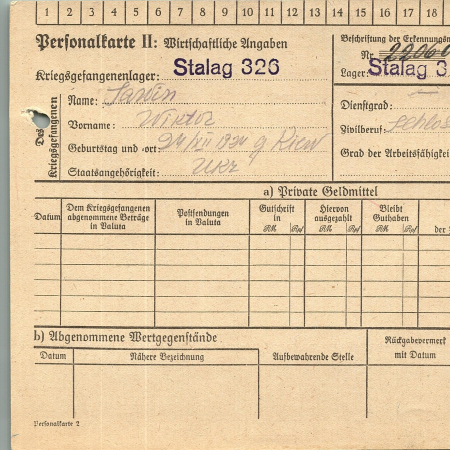 1 2 3 4 5 6 7 8 9 10 11 12 13 14 15 16 17 18
Personalkarte II: Wirtschaftliche Angaben
Beschriftung der Erkennungsm
Nr. 2206
Kriegsgefangenenlager: Stalag 326
Lager: Stalag 3
Des Kriegsgefangenen
Name: Sawin
Vorname: Wiktor
Dienstgrad: —
Geburtstag und -ort: 24/XII 1924 g Kiew
Zivilberuf: Schlos
Staatsangehörigkeit: Ukr
Grad der Arbeitsfähigkei
a) Private Geldmittel
Datum
Dem Kriegsgefangenen abgenommene Beträge in Valuta
Postsendungen in Valuta
Gutschrift in
RM Rpf
Hiervon ausgezahlt
RM Rpf
Bleibt Guthaben
RM Rpf
der
b) Abgenommene Wertgegenstände
Datum
Nähere Bezeichnung
Aufbewahrende Stelle
Rückgabevermerk mit Datum
Personalkarte 2